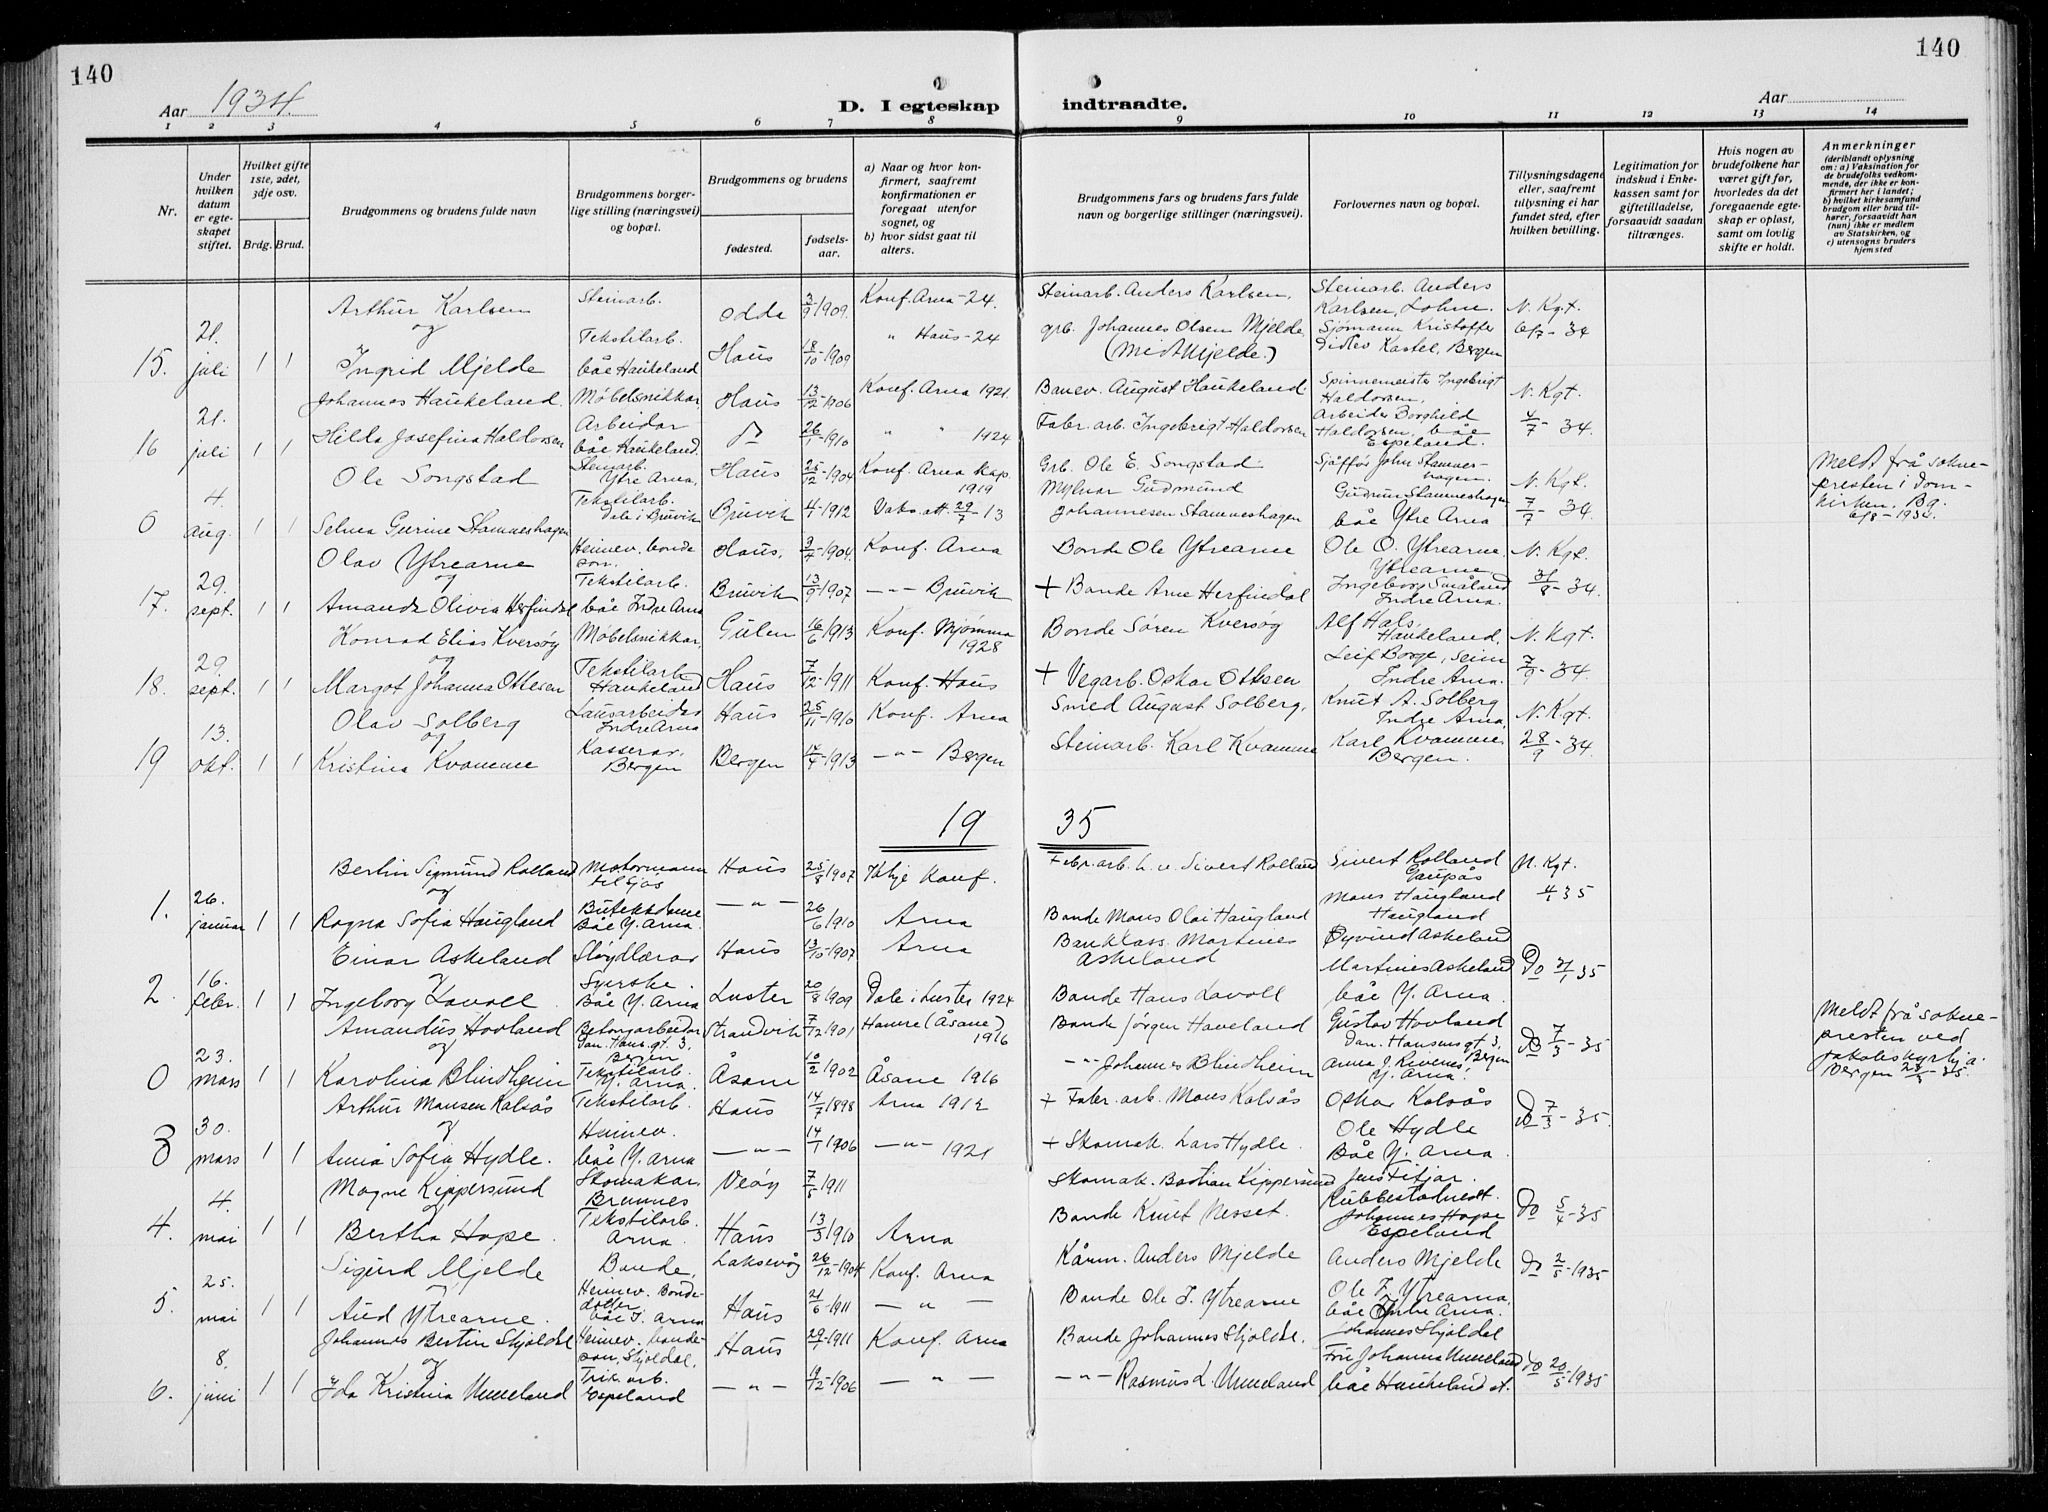 140
140
Aar 1934.
D. I egteskap indtraadte.
Aar
1 2 3 4 5 6 7 8 9 10 11 12 13 14
Nr.
Under hvilken datum er egteskapet stiftet.
Hvilket gifte 1ste, 2det, 3dje osv.
Brdg. Brud.
Brudgommens og brudens fulde navn
Brudgommens borgerlige stilling (næringsvei) og bopæl.
Brudgommens og brudens
fødested.
fødselsaar.
a) Naar og hvor konfirmert, saafremt konfirmationen er foregaat utenfor sognet, og
b) hvor sidst gaat til alters.
Brudgommens fars og brudens fars fulde navn og borgerlige stillinger (næringsvei).
Forlovernes navn og bopæl.
Tillysningsdagene eller, saafremt tillysning ei har fundet sted, efter hvilken bevilling.
Legitimation for indskud i Enkekassen samt for giftetilladelse, forsaavidt saadan tiltrænges.
Hvis nogen av brudefolkene har været gift før, hvorledes da det foregaaende egteskap er opløst, samt om lovlig skifte er holdt.
Anmerkninger (deriblandt oplysning om: a) Vaksination for de brudefolks vedkommende, der ikke er konfirmert her i landet; b) hvilket kirkesamfund brudgom eller brud tilhører, forsaavidt han (hun) ikke er medlem av Statskirken, og c) utensogns bruders hjemsted
Arthur Karlsen Steinarb. Odda 3/9 1909. Konf. Arna - 24. Steinarb. Anders Karlsen. Steinarb. Anders Karlsen, Lohne. N. Kgt.
15. 21. juli 1 1 og Ingrid Mjelde Tekstilarb. båe Haukeland Haus 18/10-1909 " Haus - 24 grb. Johannes Olsen Mjelde (Midtmjelde.) Sjømann Kristoffer Ditlev Kastel, Bergen 6/7 - 34
Johannes Haukeland. Møbelsnikkar Haus 13/12-1906 Konf. Arna 1921. Banev. August Haukeland. Spinnemeister Ingebrigt Haldorsen, N. Kgt.
16 21. juli 1 1 Hilda Josefina Haldorsen Arbeidar båe Haukeland. do 26/1-1910 " " 1924 Fabr. arb. Ingebrigt Haldorsen Arbeider Borghild Haldorsen, båe Espeland. 4/7 - 34.
Ole Songstad Steinarb. Ytre Arna, Haus 25/12-1904 Konf. Arna kap. 1919 Grb. Ole E. Songstad Sjåffør John Stamneshagen. N. Kgt. Meldt frå sokne-
0 4. aug. 1 1 Selma Gurine Stamneshagen Tekstilarb. Dale i Bruvik Bruvik 4/1-1912 Vaks. att. 29/7 - 13 Mylnar Gudmund Johannesen Stamneshagen Gudrun Stamneshagen båe Ytre Arna 7/7 - 34. presten i Domkirken, Bg. 6/8 - 1934.
Olav Ytrearne Heimev. bondeson. Haus, 3/7-1904. Konf. Arna Bonde Ole Ytrearne Ole O. Ytrearne, Ytrearne N. Kgt.
17. 29. sept. 1 1 og Amanda Olivia Herfindal Tekstilarb. båe Indre Arna Bruvik 13/9 1907 — " — Bruvik + Bonde Arne Herfindal Ingeborg Småland Indre Arna. 31/8 - 34.
Konrad Elias Kversøy Møbelsnikkar Gulen 16/6 1913 Konf. Mjømna 1928 Bonde Søren Kversøy Alf Hals, Haukeland. N. Kgt.
18. 29. sept. 1 1 og Margot Johanna Ottesen Tekstilarb. Haukeland Haus 7/12-1911 Konf. Haus + Vegarb. Oskar Ottesen Leif Borge, Seim Indre Arna. 7/9 - 34.
Olav Solberg Lausarbeidar Indre Arna Haus 25/11-1910 Konf. Arna Smed August Solberg. Knut A. Solberg Indre Arna N. Kgt.
19 13. okt. 1 1 og Kristina Kvamme Kasserar, Bergen Bergen 14/4-1913 — " — Bergen Steinarb. Karl Kvamme Karl Kvamme Bergen. 28/9 - 34
19 35
Bertin Sigmund Rolland Motormann til sjøs Haus 25/8 1907 Ikkje konf. Fabr. arb. Sivert Rolland Sivert Rolland Gaupås N. Kgt.
1. 26. januar 1 1 og Ragna Sofia Haugland Butikkdame Båe Y. Arna. — " — 26/6 1910 Arna Bonde Mons Olai Haugland Mons Haugland Haugland 4/1 35
Einar Askeland Sløydlærar Haus 13/10-1907 Arna Martines Askeland Øyvind Askeland
2. 16. febr. 1 1 og Ingeborg Lavoll Syerske. Båe Y. Arna Luster 20/8 1909 Dale i Luster 1924 Bonde Hans Lavoll Martines Askeland båe Y. Arna. Do 31/1 35
Amandus Hovland Betongarbeidar Dan. Hans. gt. 3, Bergen Strandvik 7/12 1901 Hamre (Åsane) 1916 Bonde Jørgen Haveland Gustav Hovland Dan. Hansens gt. 3, Bergen Meldt frå sokne-
0 23. mars 1 1 og Karolina Blindheim Tekstilarb. Y. Arna. Åsane 10/2 1902 Åsane 1916 — " — Johannes Blindheim Anna J. Rivenes, Y. Arna. Do 7/3 - 35 presten ved Jakobskyrkja Bergen 23/3 - 35.
Arthur Monsen Kalsås Tekstilarb. Haus 14/7 1898 Arna 1912 + Fabr. arb. Mons Kalsås Oskar Kalsås
3 30. mars 1 1 og Anna Sofia Hydle. Heimev. båe Y. Arna — " — 14/1 1906 — " — 1921 + Skomak. Lars Hydle. Ole Hydle Båe Y. Arna. Do 7/3 - 35.
Magne Kippersund Skomakar, Bremnes Veøy 7/5 1911 Skomak. Bastian Kippersund Jens Fitjar. Rubbestadneset.
4. 4. mai 1 1 og Bertha Hope. Tekstilarb. Arna. Haus 13/3 1910 Arna Bonde Knut Nesset. Johannes Hope Espeland Do 5/4 - 35
Sigurd Mjelde Bonde, Laksevåg 26/12-1904 Konf. Arna Kåmn. Anders Mjelde Anders Mjelde Do 2/5 - 1935
5. 25. mai 1 1 og Aud Ytrearne. Heimev. Bondedotter båe I. Arna Haus 21/6-1911 — " — Bonde Ole I. Ytrearne Ole I. Ytrearne, båe Indre Arna.
Johannes Bertin Skjoldal Heimev. bondeson, Skjoldal, Haus 29/7-1911 Konf. Arna Bonde Johannes Skjoldal. Johannes Skjoldal
6. 8. juni 1 1 og Ida Kristina Unneland Trik. arb. Espeland — " — 19/12-1906 — " — — " — Rasmus L. Unneland Fru Johanna Unneland båe Haukeland st. Do 20/5-1935